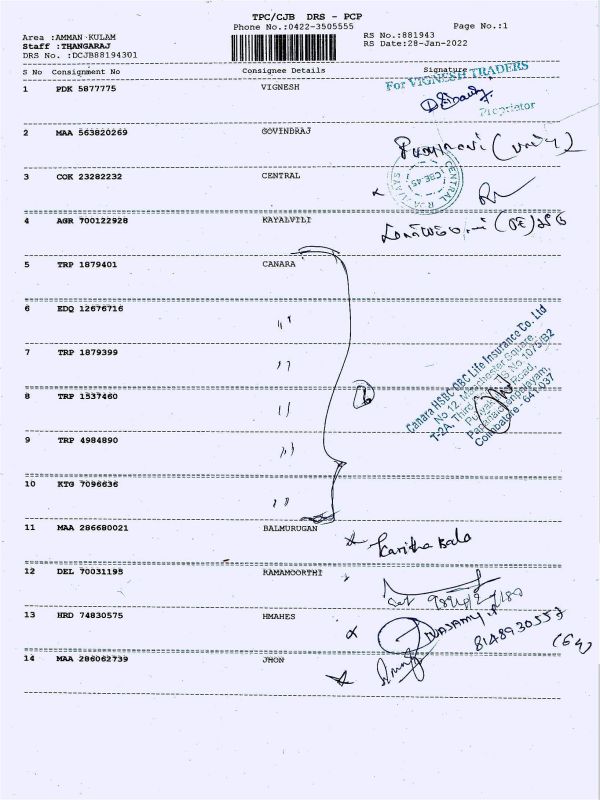 TPC/CJB DRS - PCP
Phone No.:0422-3505555
Page No.:1
Area :AMMAN KULAM
RS No.:881943
Staff :THANGARAJ
RS Date:28-Jan-2022
DRS No. :DCJB88194301
S No Consignment No Consignee Details Signature
For VIGNESH TRADERS
1 PDK 5877775 VIGNESH
Proprietor
2 MAA 563820269 GOVINDRAJ
3 COK 23282232 CENTRAL
4 AGR 700122928 KAYALVILI
5 TRP 1879401 CANARA
6 EDQ 12676716 "
7 TRP 1879399 "
8 TRP 1537460 "
9 TRP 4984890 "
10 KTG 7096636 "
Canara HSBC OBC Life Insurance Co. Ltd
No 12, Manchester Square,
T-2A, Third
Coimbatore - 641037
11 MAA 286680021 BALMURUGAN
Karitha Bala
12 DEL 70031195 RAMAMOORTHI
13 HRD 74830575 HMAHES
8148930557
(64)
14 MAA 286062739 JHON